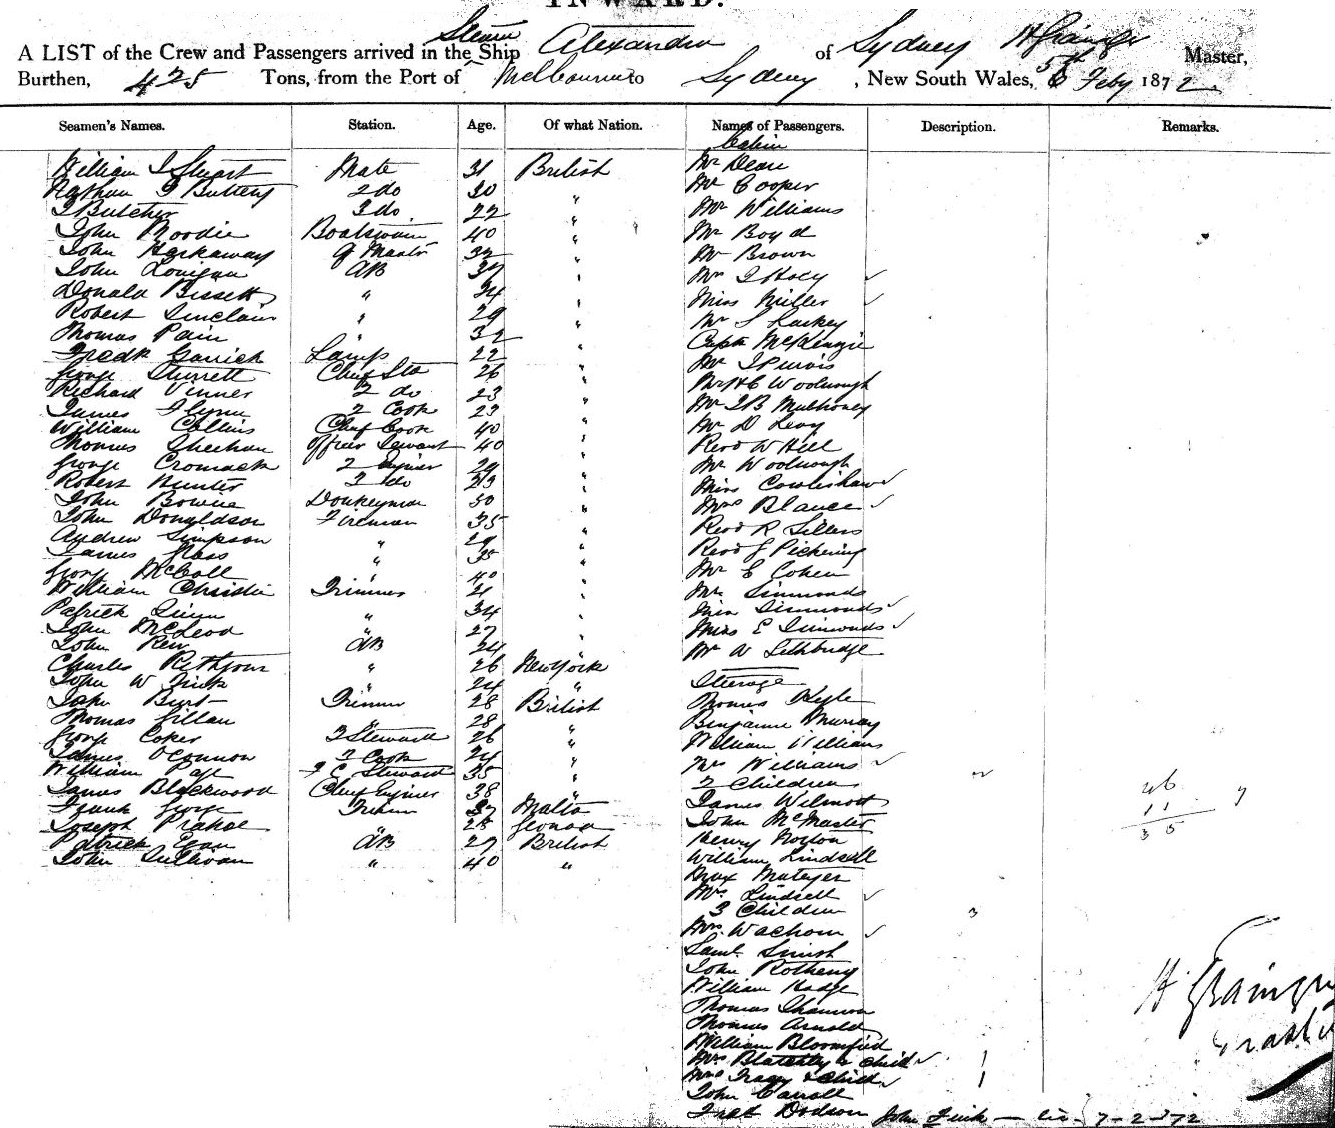 INWARD.
A LIST of the Crew and Passengers arrived in the Steam Ship Alexandra of Sydney H Grainger Master,
Burthen, 425 Tons, from the Port of Melbourne to Sydney, New South Wales, 5th Feby 1872.
Seamen's Names. Station. Age. Of what Nation. Names of Passengers. Description. Remarks.
Cabin
William J Stuart Mate 31 British Mr Dean
Nathan G Buttery 2 do 30 " Mr Cooper
J Butcher 3 do 22 " Mr Williams
John Moodie Boatswain 40 " Mr Boyd
John Harkaway Q Mastr 32 " Mr Brown
John Lonigan AB 37 " Mr J Hoey
Donald Bissett " 24 " Miss Miller
Robert Sinclair " 29 " Mr S Luckey
Thomas Pain " 32 " Capt McKenzie
Fredk Garrick Lamps 22 " Mr J Purvis
George Sturrett Chief Std 26 " Mr H C Woolnough
Richard Vinner 2 do 23 " Mr J B Mulhoney
James Flynn 2 Cook 23 " Mr D Levy
William Collins Chief Cook 40 " Revd W Hill
Thomas Sheehan Officer Servant 40 " Mr Woolnough
George Cromack 2 Eginer 29 " Miss Cowlishaw
Robert Hunter 3 do 23 " Mrs Blancee
John Bowie Donkeyman 30 " Revd R Sellers
John Donaldson Fireman 35 " Revd J Pickering
Andrew Simpson " 29 " Mr E Cohen
James Ross " 35 " Mr Simmonds
George McColl " 40 " Miss Simmonds
William Christie Trimmer 21 " Miss E Simmonds
Patrick Quinn " 34 " Mr W Lethbridge
John McLeod " 27 "
John Ren AB 24 " Steerage
Charles " 26 New York Thomas Kyle
John W Fink " 24 " Benjamin Murray
John Burt Trimmer 28 British William Williams
Thomas Gillan " 28 " Mrs Williams
George Coker 3 Steward 26 " 2 Children 2
James O'Connor 3 Cook 24 " James Wilmott
William Page F C Steward 35 " John McMaster
James Blackwood Chief Eginer 38 " Henry Norton
Frank George Trimer 37 Malta William Lindsell
Joseph 25 Genoa Max
Patrick Egan AB 27 British Mrs Lindsell
John Sullivan " 40 " 3 Children 3
Mrs Wachorn
Saml Smith
John Rothery
William Hodge
Thomas Shannon
Thomas Arnold
William Bloomfield
Mrs Blatchly & child 1
Mrs Tracy & Child 1
John Carroll
Fredk Dodson John Fink 7-2-72
46
11 7
35
H Grainger
Master